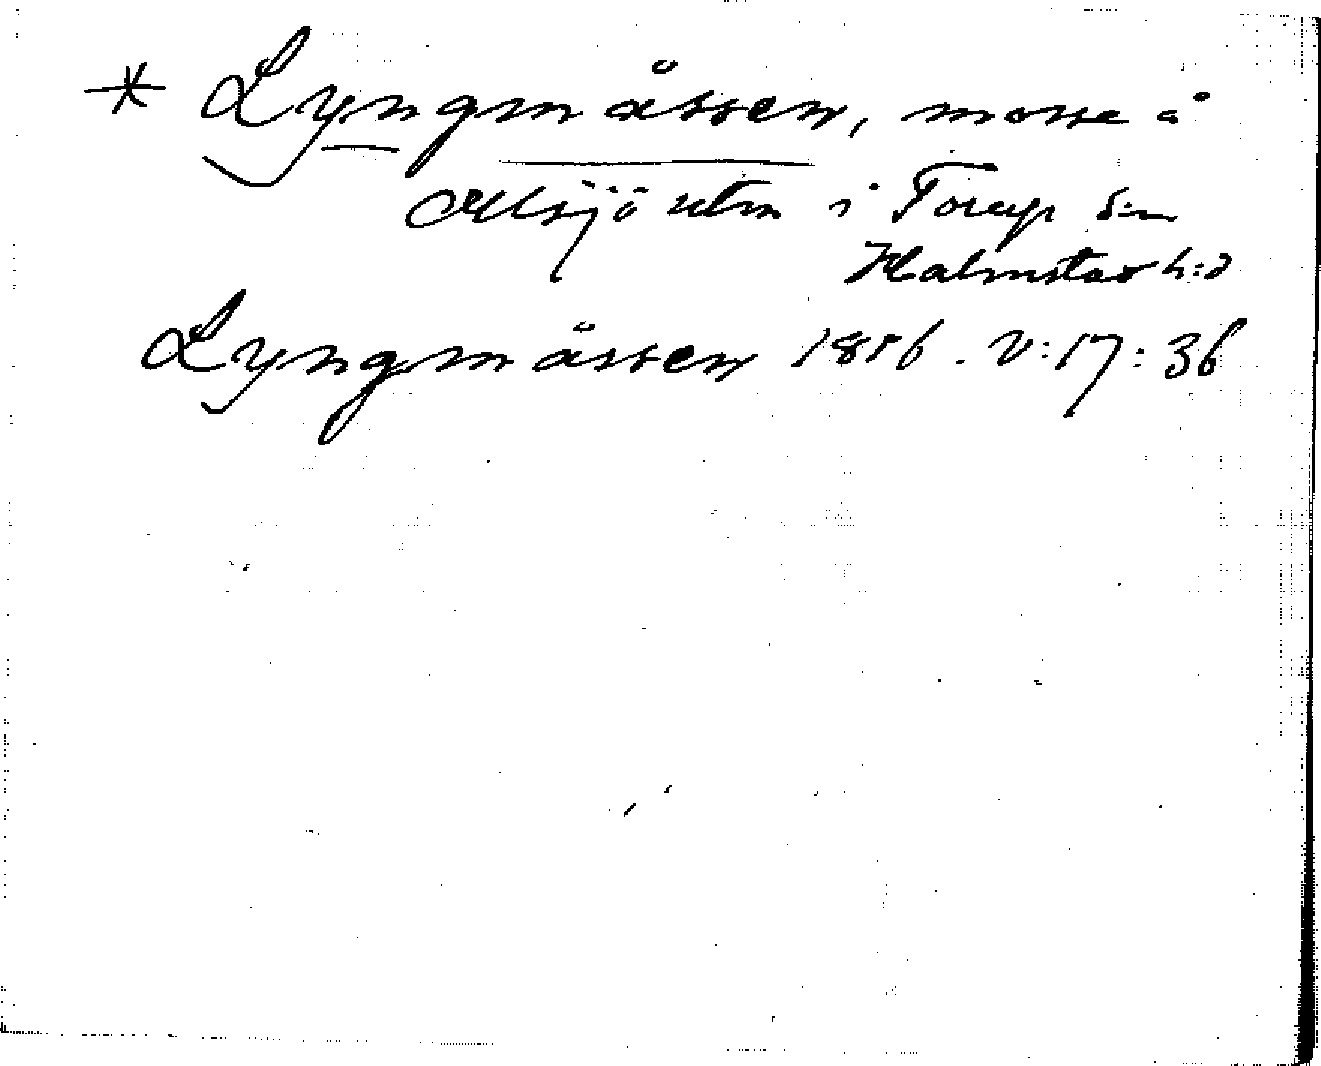 * Lyngmåssen, mosse å
utm i Torup s:n
Halmstad h:d
Lyngmåssen 1856. V:17:36